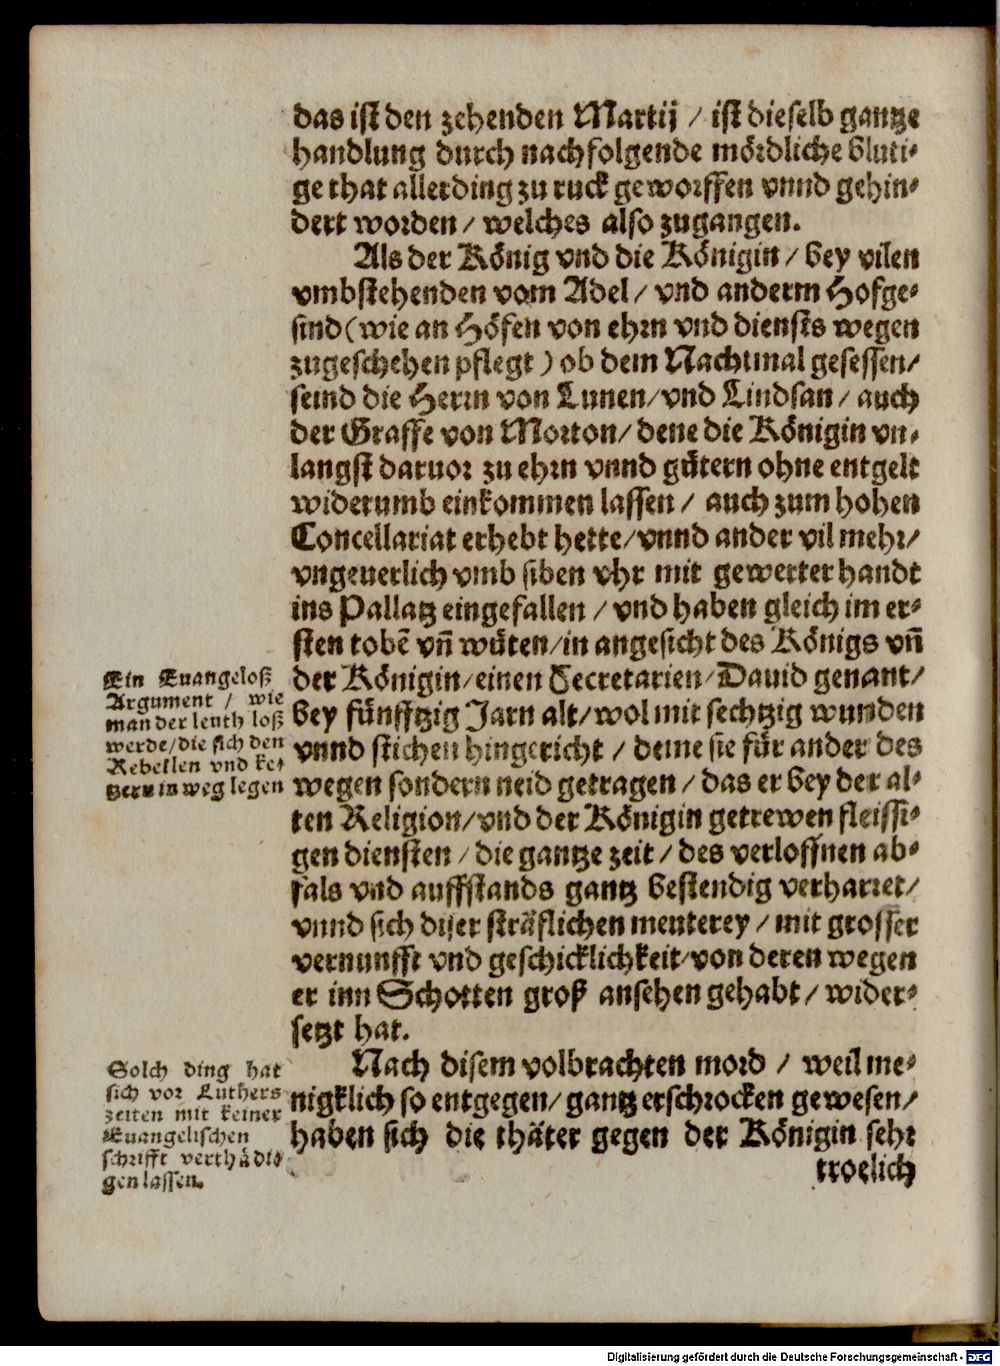 das ist den zehenden Martij / ist dieselb gantze
handlung durch nachfolgende mördliche bluti-
ge that allerding zu ruck geworffen vnnd gehin-
dert worden / welches also zugangen.
Als der König vnd die Königin / bey vilen
vmbstehenden vom Adel / vnd anderm Hofge-
sind (wie an Höfen von ehrn vnd diensts wegen
zugeschehen pflegt) ob dem Nachtmal gesessen /
seind die Herrn von Lunen / vnd Lindsan / auch
der Graffe von Morton / dene die Königin vn-
langst daruor zu ehrn vnnd gütern ohne entgelt
widerumb einkommen lassen / auch zum hohen
Concellariat erhebt hette / vnnd ander vil mehr /
vngeuerlich vmb siben vhr mit gewerter handt
ins Pallatz eingefallen / vnd haben gleich im er-
sten tobē vn̄ wüten / in angesicht des Königs vn̄
der Königin / einen Secretarien / Dauid genant /
bey fünfftzig Jarn alt / wol mit sechtzig wunden
vnnd stichen hingericht / deme sie für ander des
wegen sondern neid getragen / das er bey der al-
ten Religion / vnd der Königin getrewen fleissi-
gen diensten / die gantze zeit / des verloffnen ab-
fals vnd auffstands gantz bestendig verharret /
vnnd sich diser sträflichen meuterey / mit grosser
vernunfft vnd geschicklichkeit / von deren wegen
er inn Schotten groß ansehen gehabt / wider-
setzt hat.
Nach disem volbrachten mord / weil me-
nigklich so entgegen / gantz erschrocken gewesen /
haben sich die thäter gegen der Königin sehr
troelich
Ein Euangeloß
Argument / wie
man der leuth loß
werde / die sich den
Rebellen vnd ke-
tzern in weg legen
Solch ding hat
sich vor Luthers
zeiten mit keiner
Euangelischen
schrifft verthädi-
gen lassen.
Digitalisierung gefördert durch die Deutsche Forschungsgemeinschaft - DFG